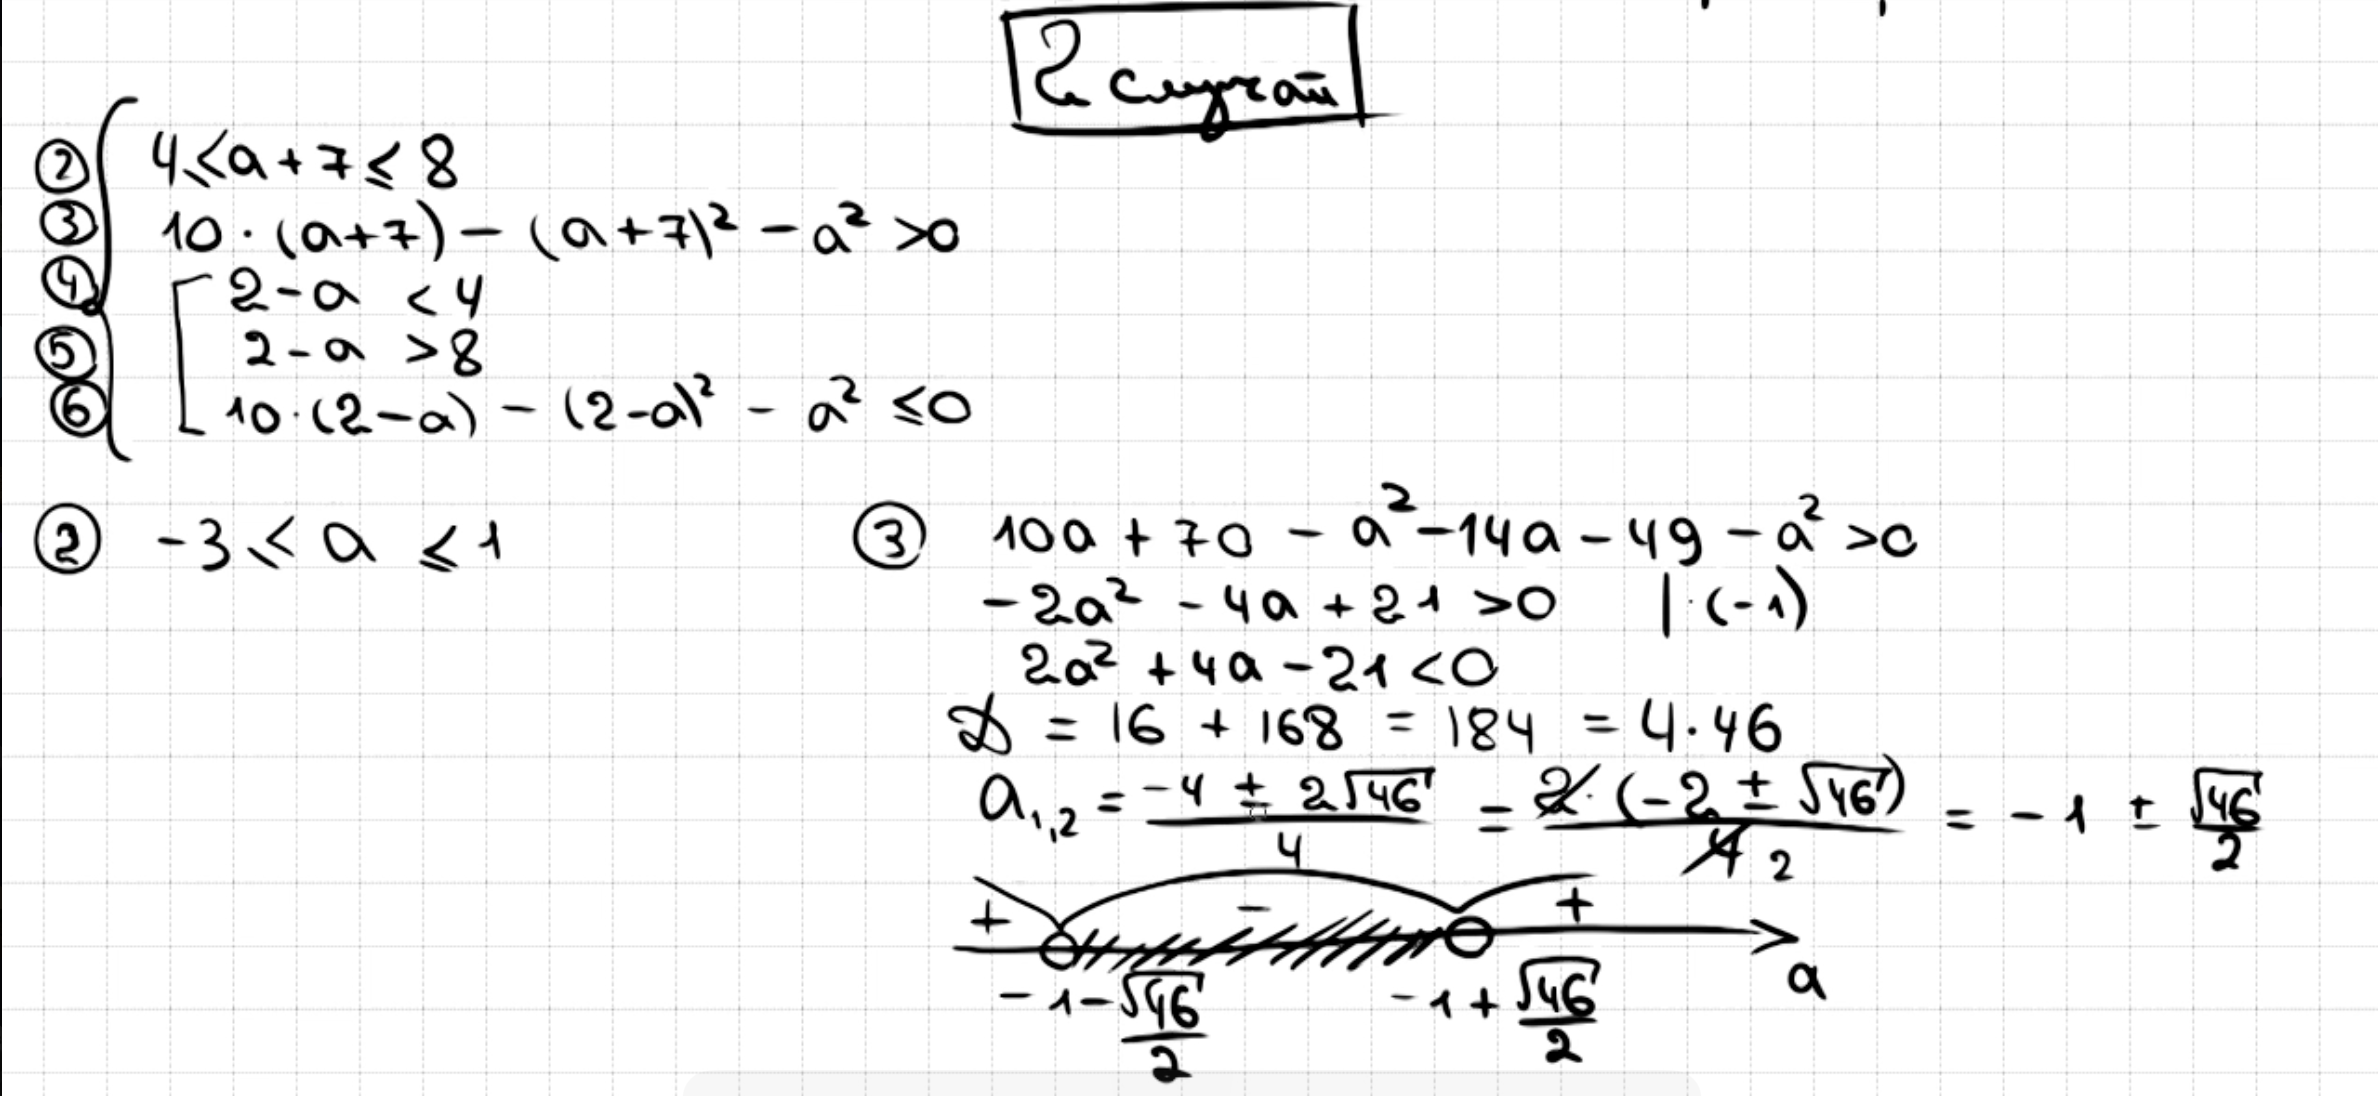 2 случай
② 4 ≤ a + 7 ≤ 8
③ 10 · (a+7) − (a+7)² − a² > 0
④ 2 − a < 4
⑤ 2 − a > 8
⑥ 10 · (2−a) − (2−a)² − a² ≤ 0
② −3 ≤ a ≤ 1
③ 10a + 70 − a² − 14a − 49 − a² > 0
−2a² − 4a + 21 > 0 | · (−1)
2a² + 4a − 21 < 0
D = 16 + 168 = 184 = 4 · 46
a₁,₂ = (−4 ± 2√46)/4 = 2 · (−2 ± √46)/4 2 = −1 ± √46/2
+ − +
−1 − √46/2 −1 + √46/2 a